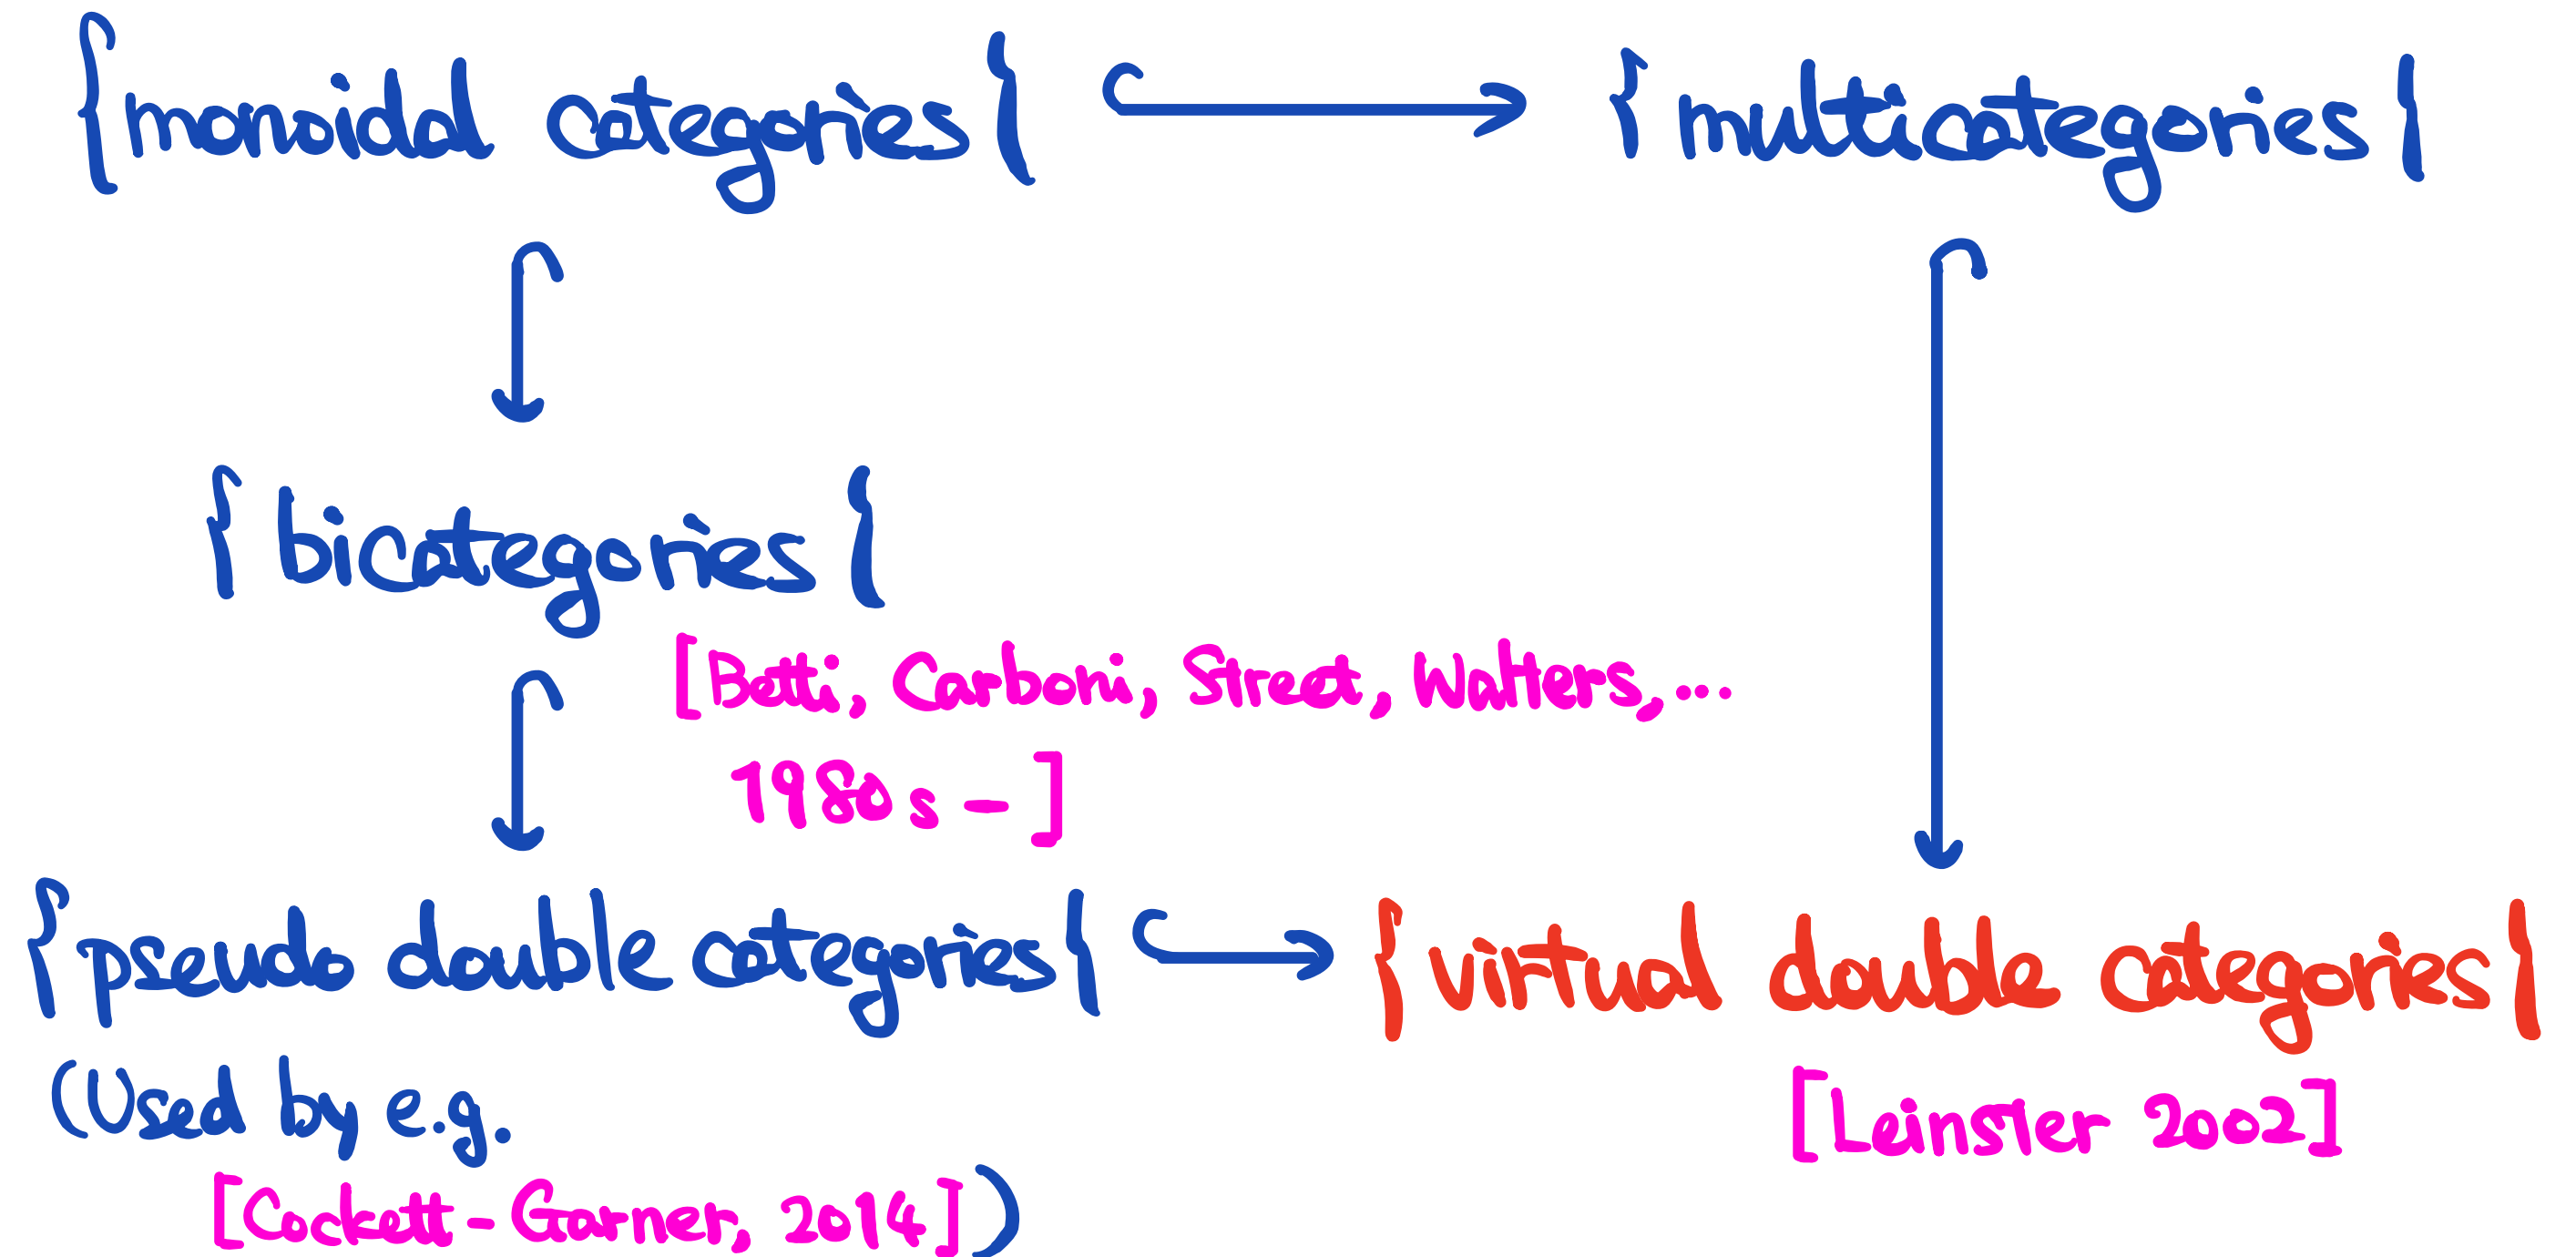 {monoidal categories} {multicategories}
{bicategories}
[Betti, Carboni, Street, Walters, ...
1980s - ]
{pseudo double categories} {virtual double categories}
(Used by e.g. [Leinster 2002]
[Cockett-Garner, 2014])